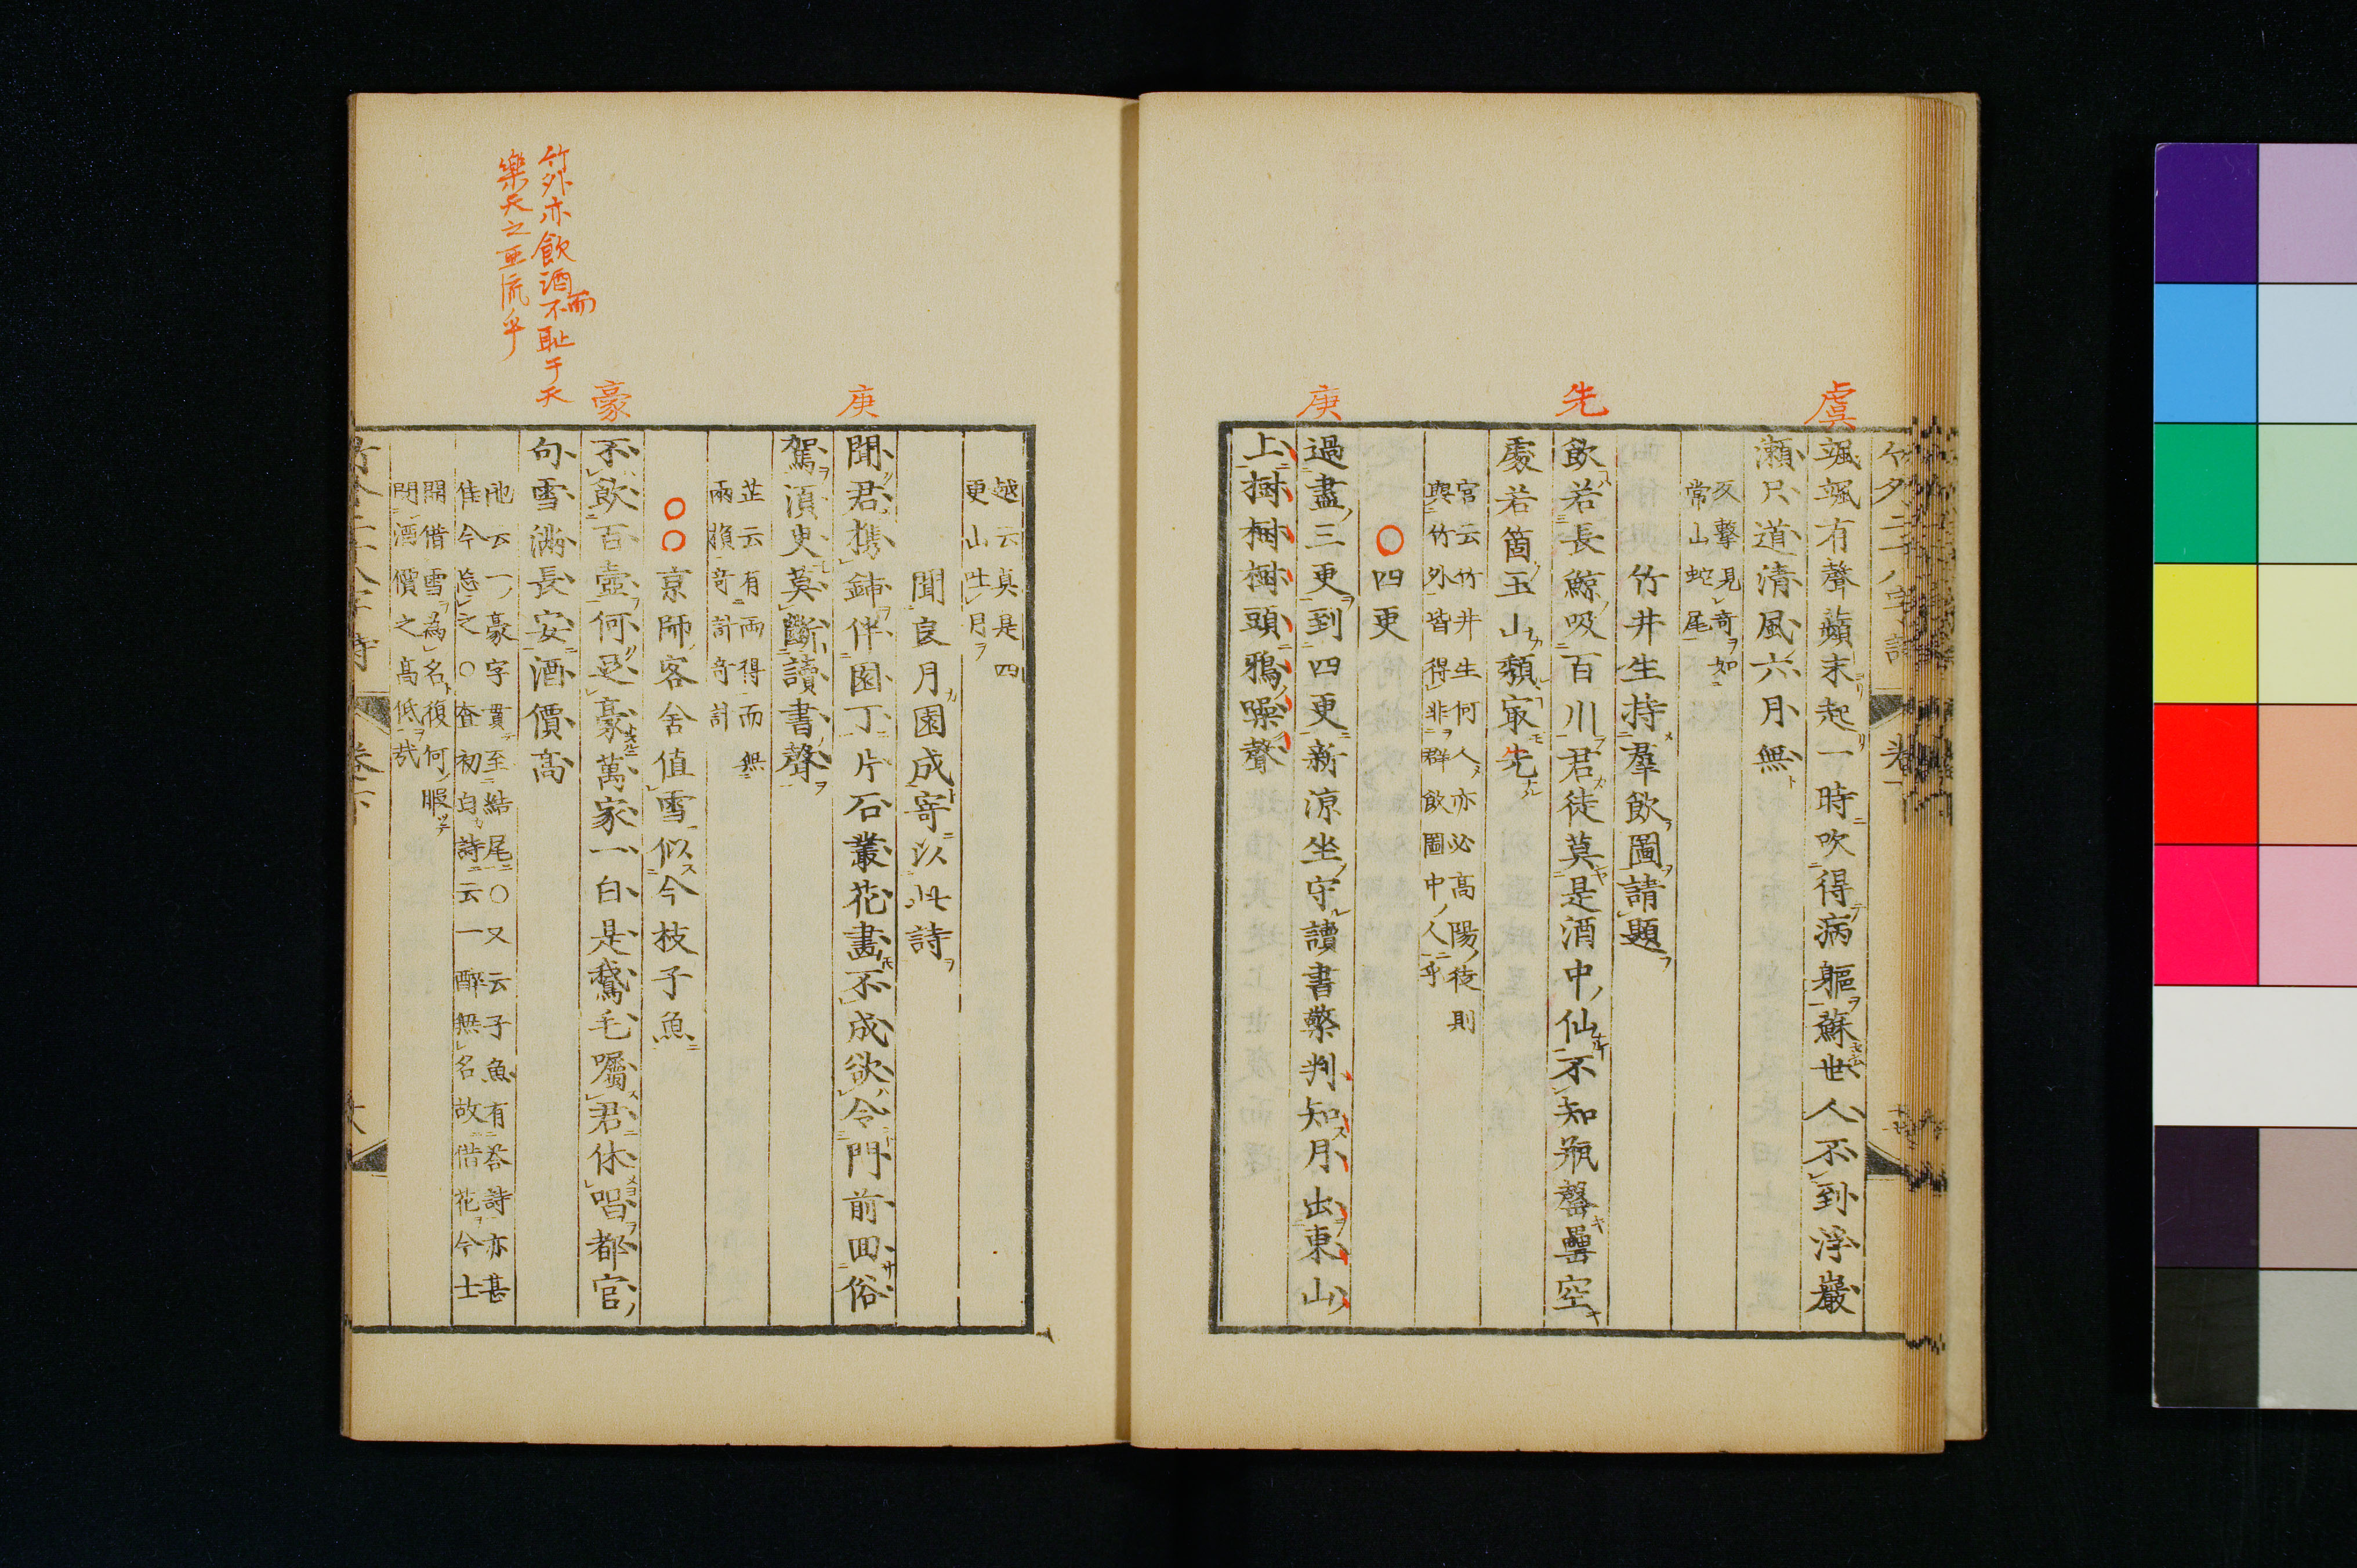 虞
颯颯有聲蘋末起一時吹得病軀蘇世人不到浮巖
瀬只道清風六月無
反擊見奇如
常山蛇尾
竹井生持羣飲圖請題
先
飲若長鯨吸百川君徒莫是酒中仙不知瓶罄罍空
處若箇玉山頽最先
宮云竹井生何人亦必高陽徒則
與竹外皆得非群飲圖中人乎
〇四更
庚
過盡三更到四更新涼坐守讀書檠判知月出東山
上樹樹樹頭鴉噪聲
越云真是四
更山吐月
聞良月園成寄以此詩
庚
聞君携鋪伴園丁片石叢花畫不成欲令門前回俗
駕須叟莫斷讀書聲
芷云有兩得而無
兩損奇計奇計
〇〇京師客舍値雪似今枝子魚
豪
不飲百壺何足豪萬家一白是鵞毛囑君休唱都官
句雪滿長安酒價高
竹外亦飲酒而不恥于天
樂天之亜流乎
池云一豪字貫至結尾〇又云子魚有答詩亦甚
佳今忘之〇査初白詩云一醉無名故借花今士
開借雪為名復何暇
問酒價之高低哉